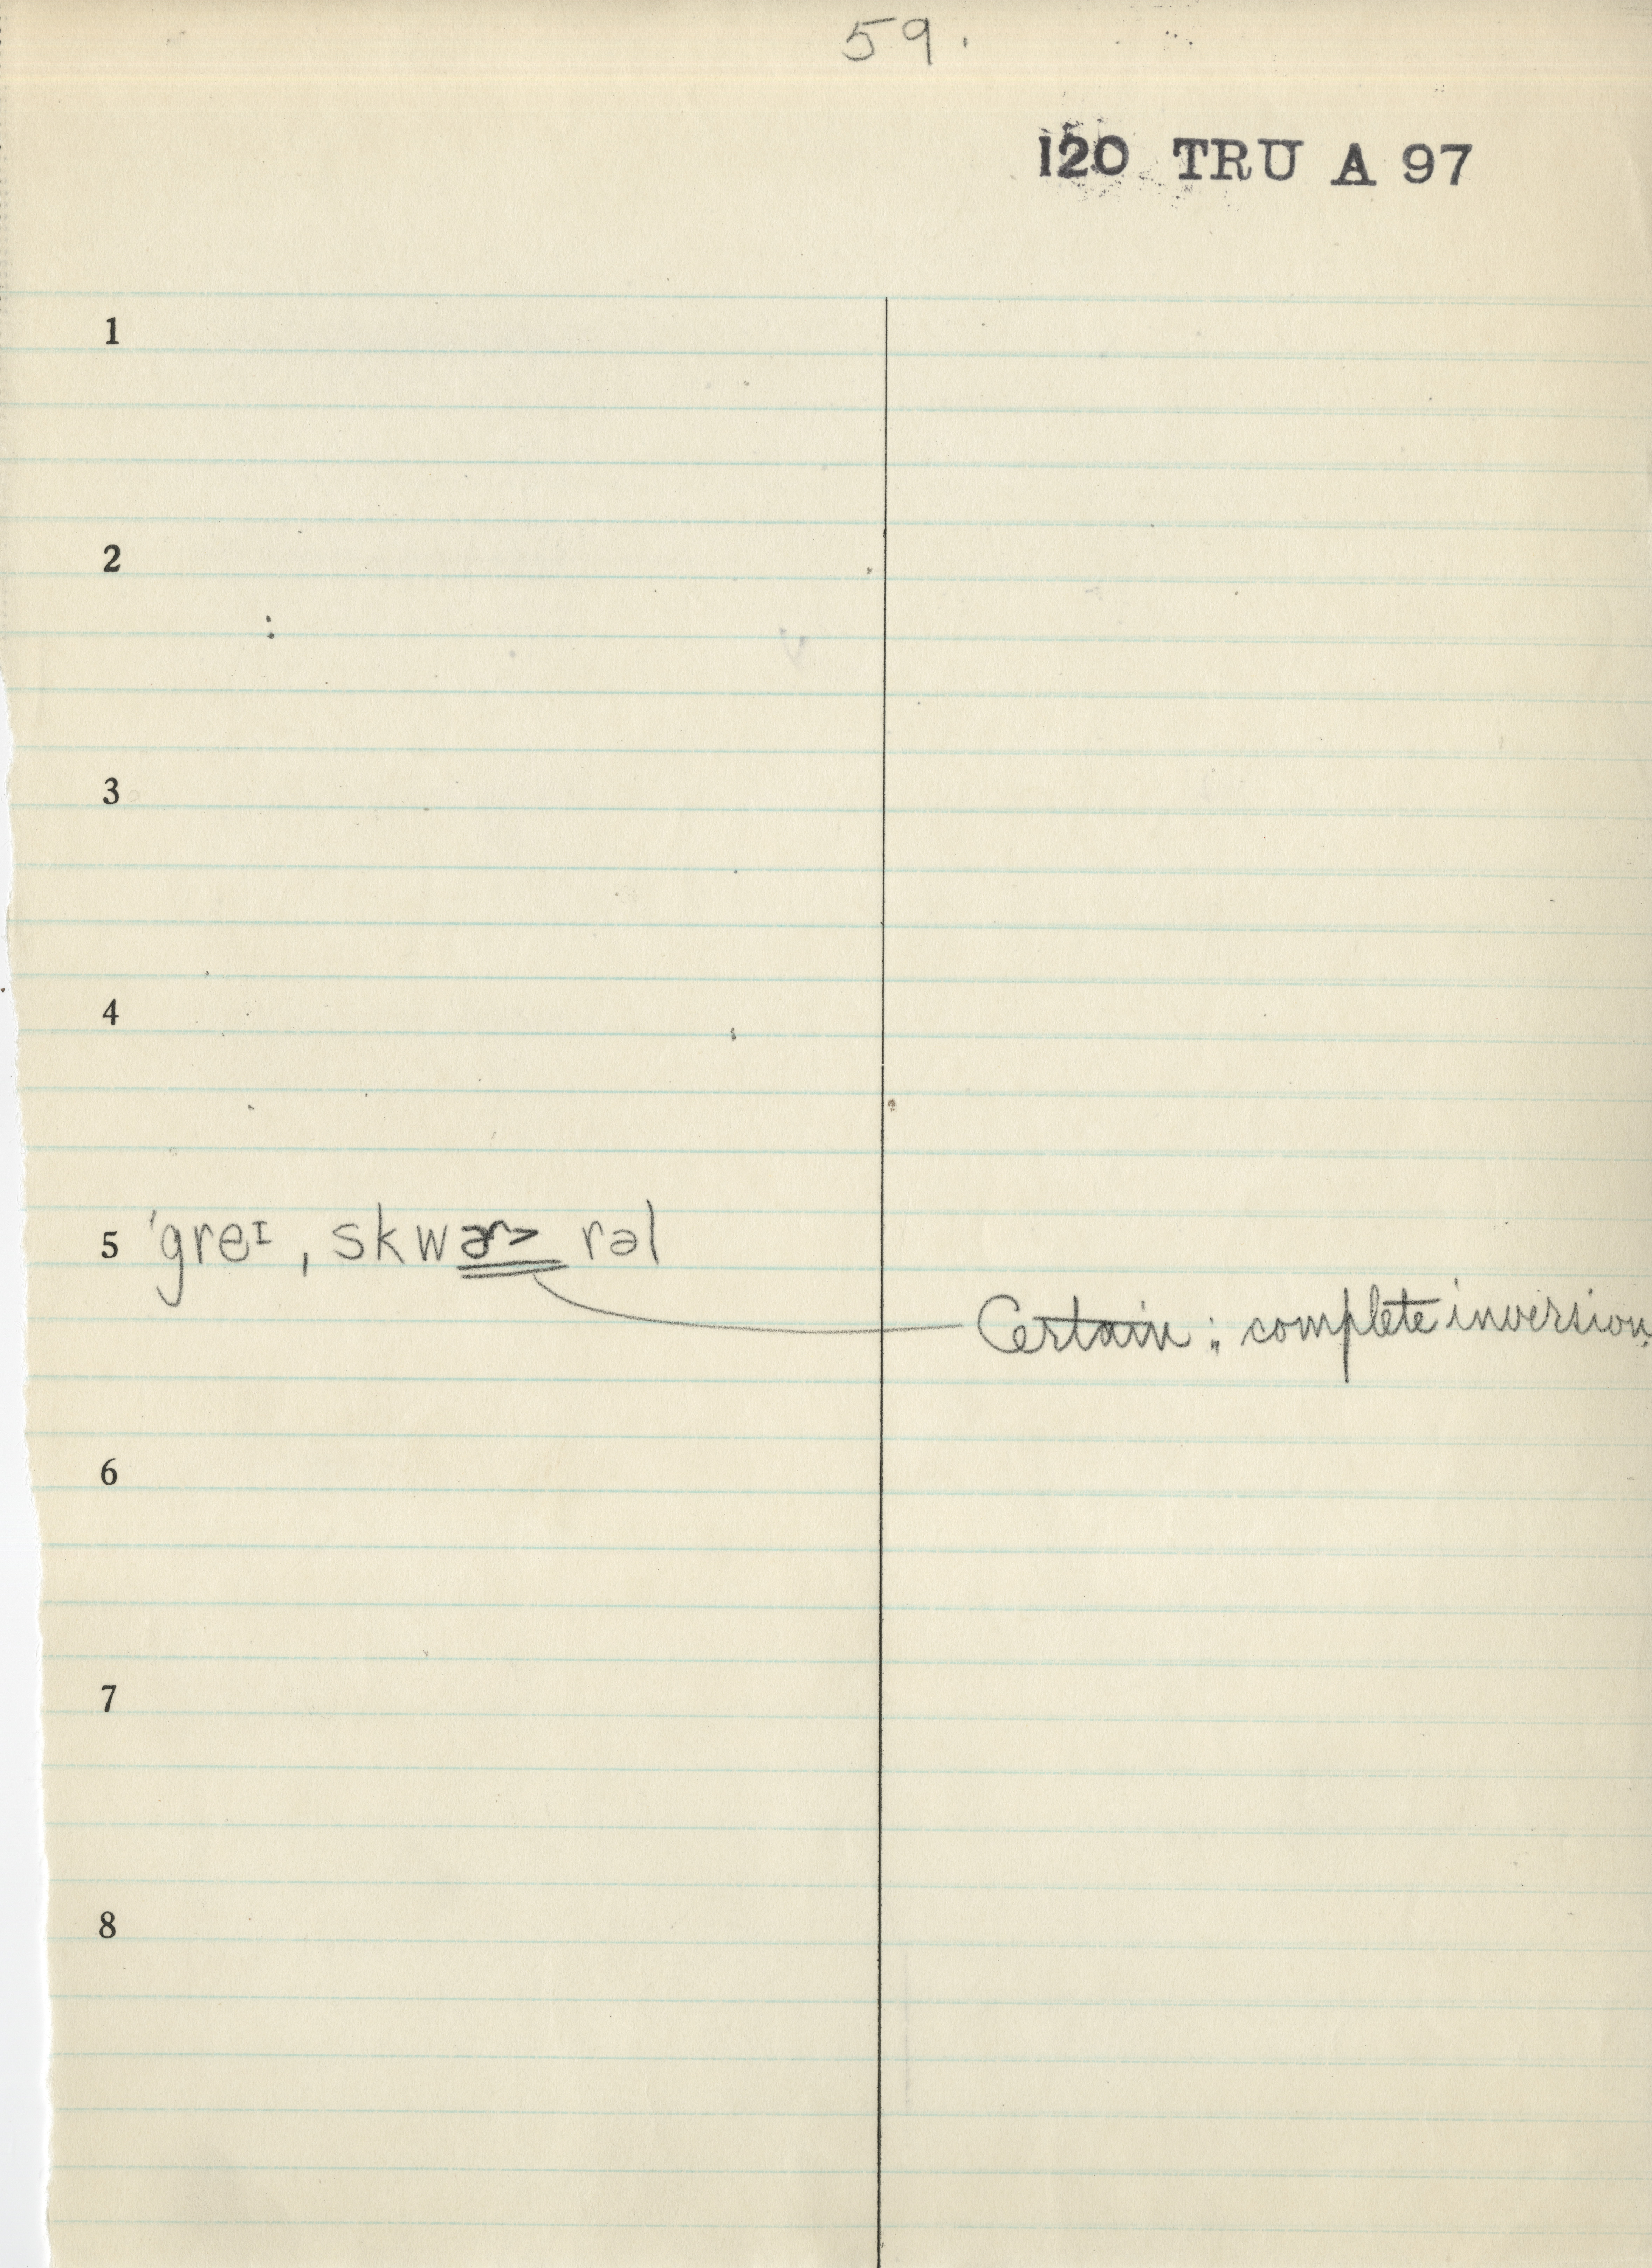 59.
120 TRU A 97
1
2
3
4
5 ˈgreᶦ ˌskwɚ˃ rəl
Certain: complete inversion.
6
7
8